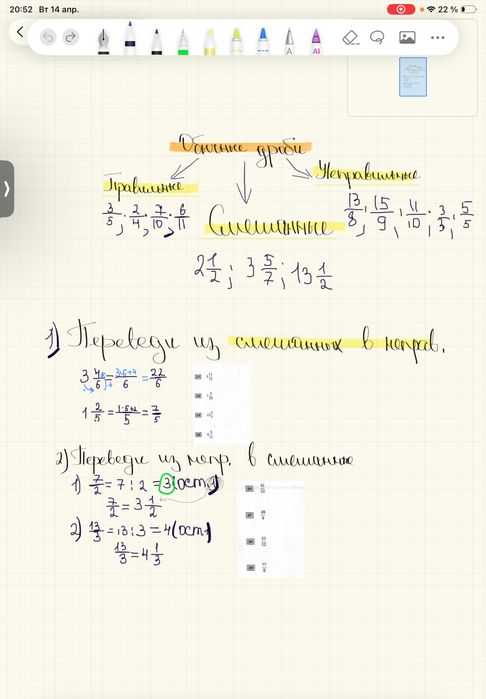 20:52 Вт 14 апр.
22 %
Обычные дроби
Правильные
Неправильные
3/5; 2/4; 7/10; 6/11
Смешанные
13/8; 15/9; 11/10; 3/3; 5/5
2 1/2; 3 5/7; 13 1/2
1) Переведи из смешанных в неправ.
3 4/6 = 3·6+4/6 = 22/6
1 2/5 = 1·5+2/5 = 7/5
2) Переведи из непр. в смешанные
1) 7/2 = 7 : 2 = 3 (ост 1)
7/2 = 3 1/2
2) 13/3 = 13 : 3 = 4 (ост 1)
13/3 = 4 1/3